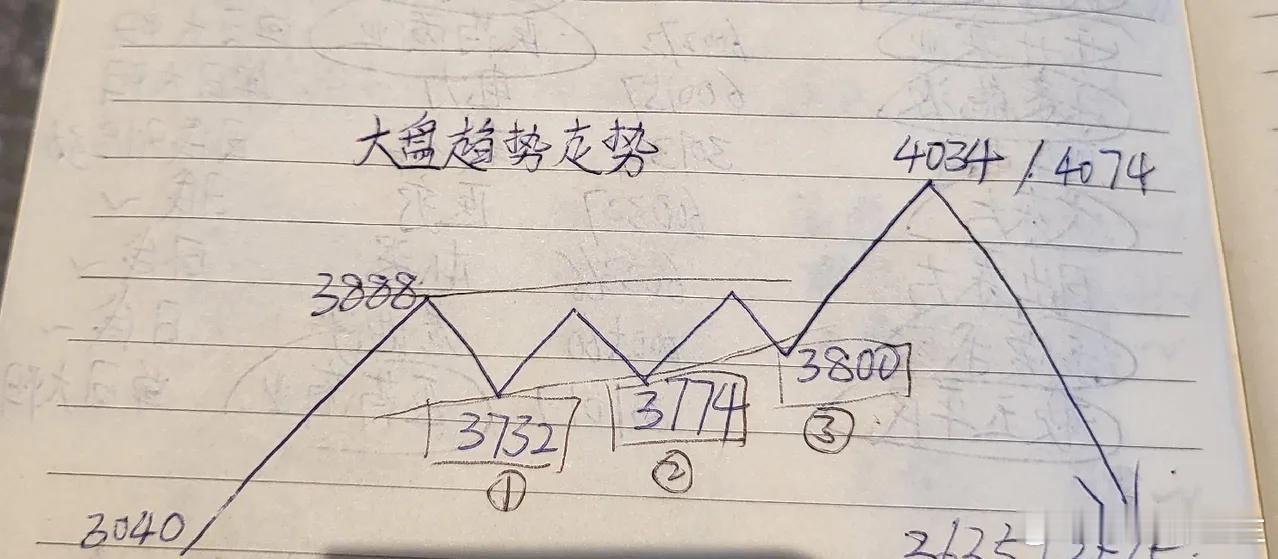 大盘趋势走势
4034 / 4074
3888
3800
3774
3732
③
②
①
3040